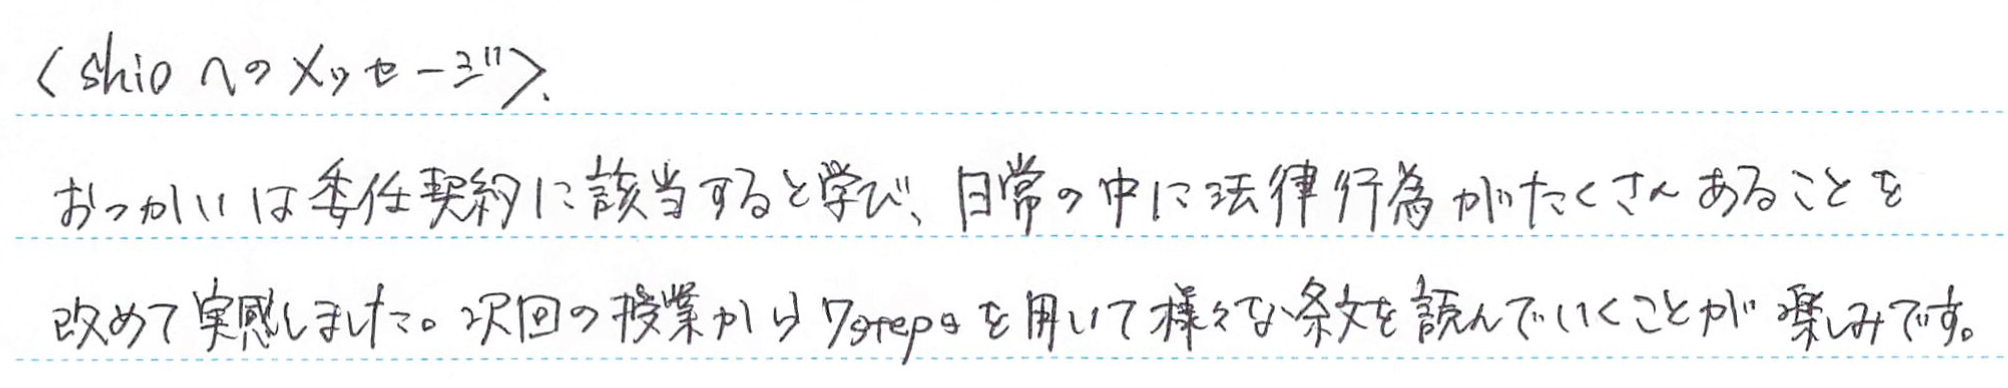 〈shioへのメッセージ〉.
おつかいは委任契約に該当すると学び、日常の中に法律行為がたくさんあることを
改めて実感しました。次回の授業から7stepsを用いて様々な条文を読んでいくことが楽しみです。